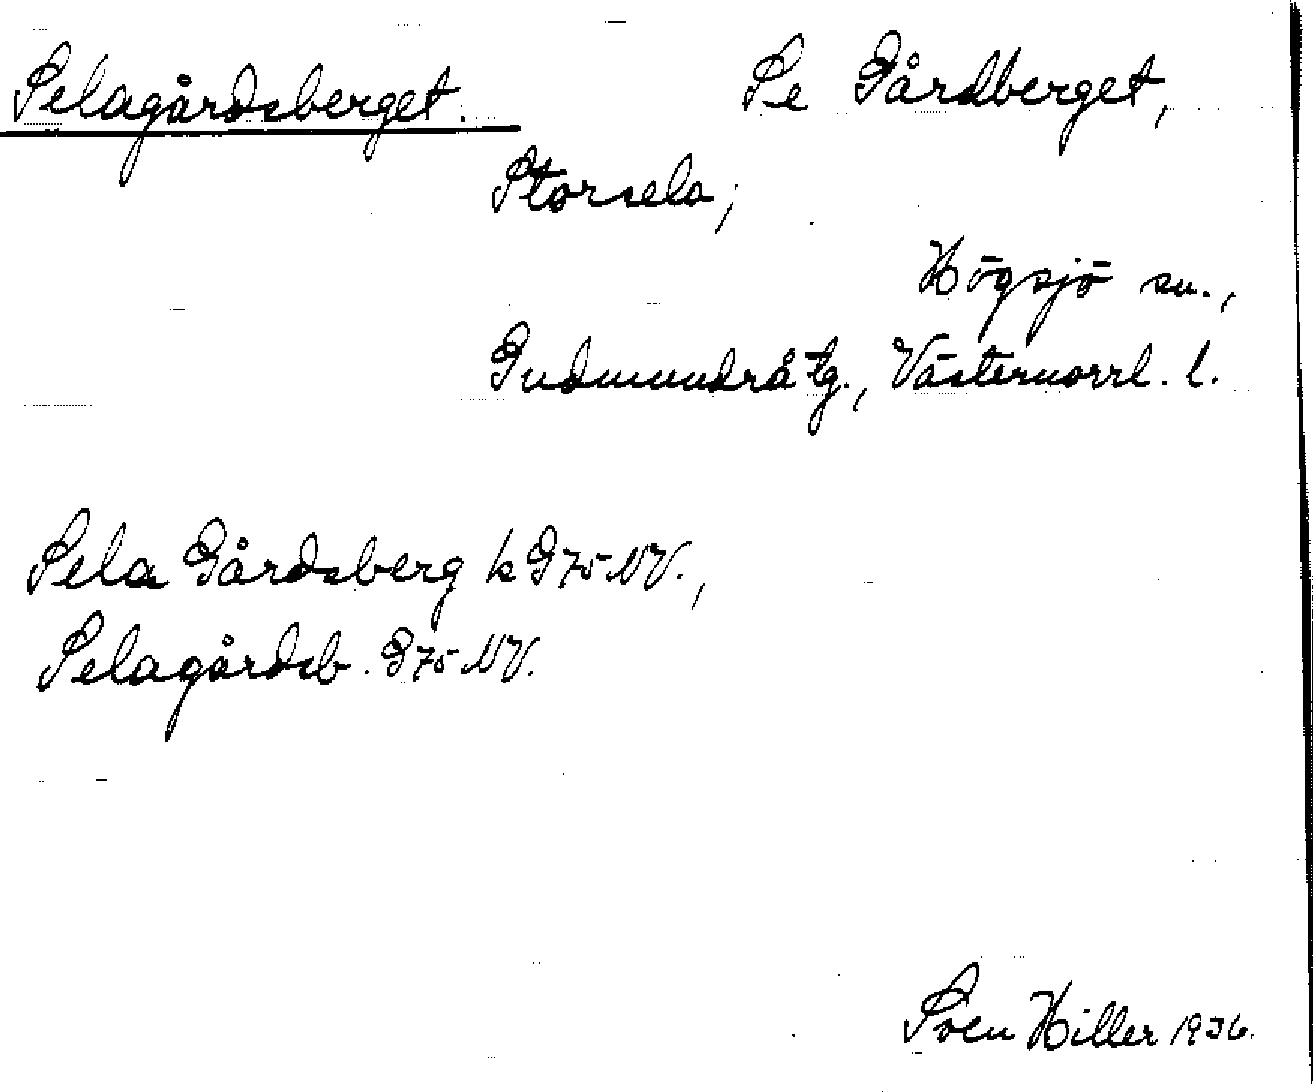 Selagårdsberget. Se Gårdberget,
Storsela;
Högsjö sn.,
Gudmundrå tg., Västernorrl. l.
Sela Gårdsberg k G75 NV.,
Selagårdsb. G75 NV.
Sven Hiller 1936.